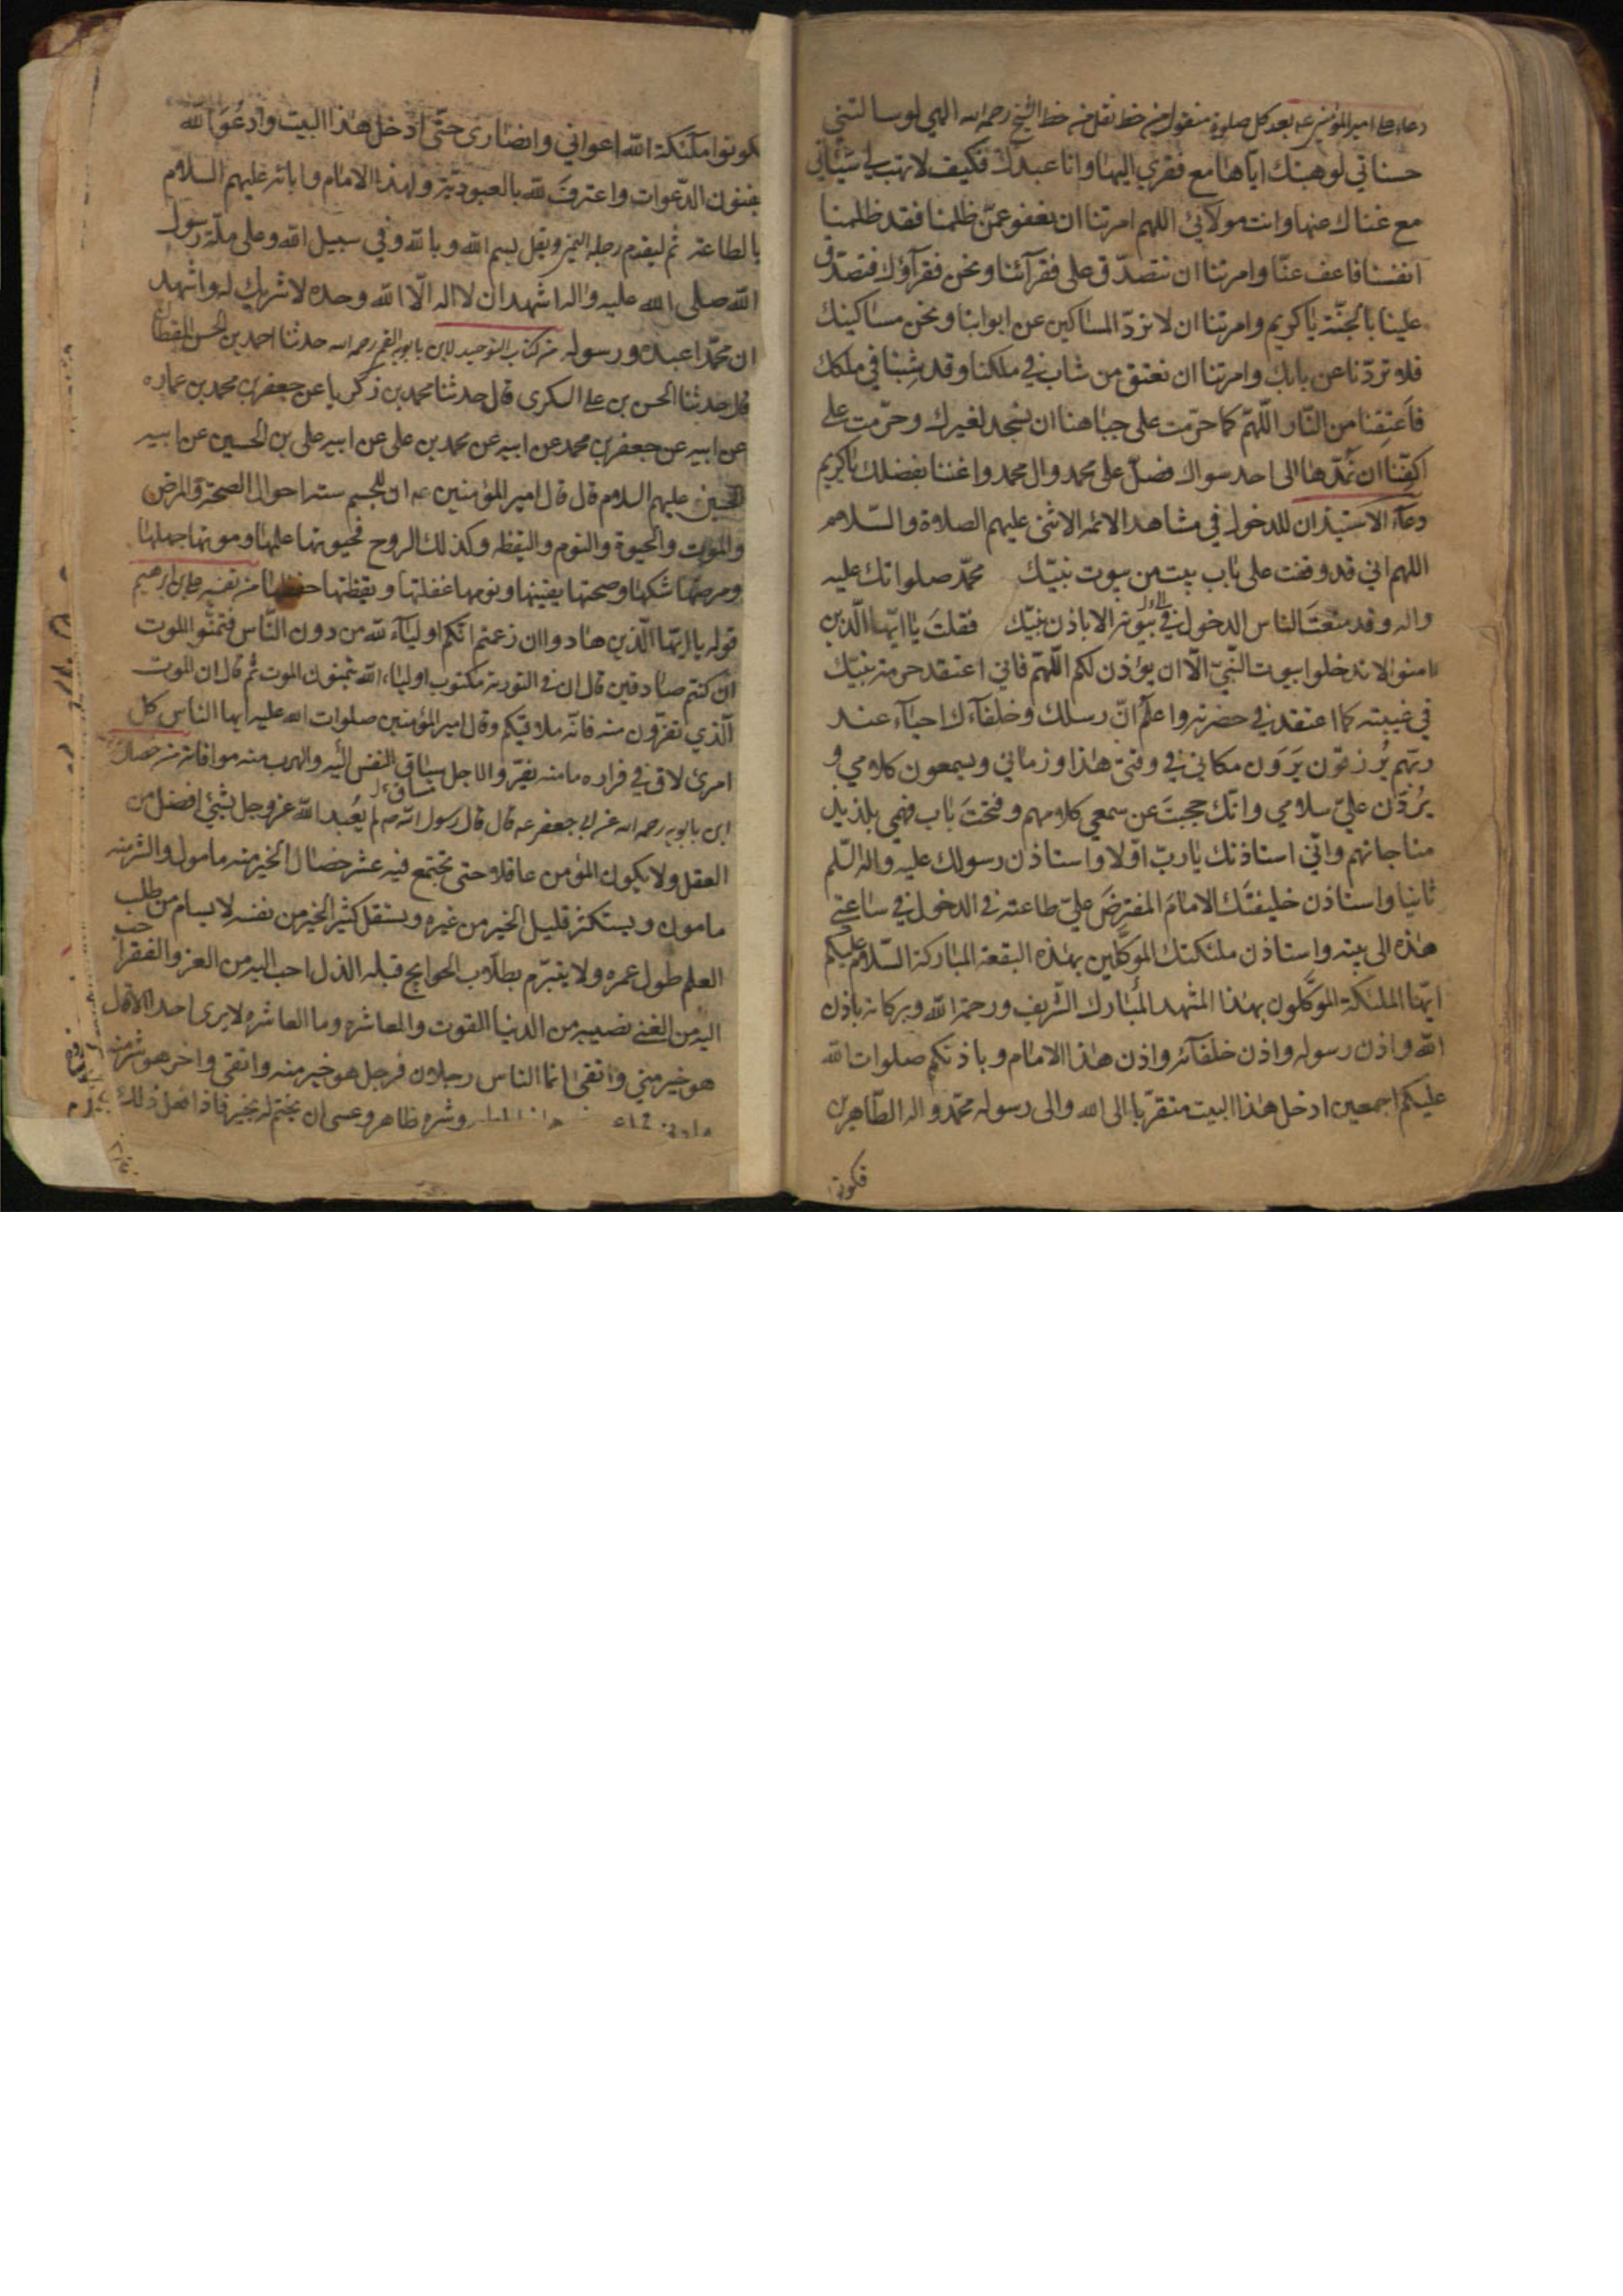 دعاء امير المؤمنين عه بعد كل صلوة منقول من خط نقل من خط الشيخ رحمه الله الهي لو سالتني
حسناتي لوهبتك اياها مع فقري اليها وانا عبدك فكيف لا تهب لي سيئاتي
مع غناك عنها وانت مولائي اللهم امرتنا ان نعفو عمّن ظلمنا فقد ظلمنا
انفسنا فاعف عنّا وامرتنا ان نتصدّق على فقرآئنا ونحن فقرآؤك فتصدّق
علينا بالجنّة يا كريم وامرتنا ان لا نردّ المساكين عن ابوابنا ونحن مساكينك
فلا تردّنا عن بابك وامرتنا ان نعتق من شاب في ملكنا وقد شبنا في ملكك
فاعتقنا من النّار اللّهمّ كما حرّمت على جباهنا ان تسجد لغيرك وحرّمت على
اكفّنا ان نمدّها الى احد سواك فصلّ على محمد وال محمد واغننا بفضلك يا كريم
دعآء الاستيذان للدخول في مشاهد الائمه الاثنى عليهم الصلاة والسّلام
اللهم اني قد وقفت على باب بيت من بيوت نبيّك محمّد صلواتك عليه
واله وقد منعت الناس الدخول في بيوته الا باذن نبيّك فقلت يا ايّها الّذين
امنوا لا تدخلوا بيوت النّبيّ الّا ان يؤذن لكم اللّهمّ فاني اعتقد حرمة نبيّك
في غيبته كما اعتقد في حضرته واعلم انّ رسلك وخلفآءك احيآء عند
ربّهم يُرزقون يَرَون مكاني في وقتي هذا وزماني ويسمعون كلامي و
يَرُدّون عليّ سلامي وانّك حجبتَ عن سمعي كلامهم وفتحتَ باب فهمي بلذيذ
مناجاتهم وانّي استاذنك يا ربّ اوّلا واستاذن رسولك عليه واله السّلم
ثانيا واستاذن خليفتك الامامَ المفترضَ عليّ طاعته في الدخول في ساعتي
هذه الى بيته واستاذن ملئكتك الموكّلين بهذه البقعة المباركة السّلام عليكم
ايّها الملئكة الموكّلون بهذا المشهد المبارك الشّريف ورحمة الله وبركاته باذن
الله واذن رسوله واذن خلفآئه واذن هذا الامام وباذنكم صلوات الله
عليكم اجمعين ادخل هذا البيت متقرّبا الى الله والى رسوله محمّد واله الطّاهرين
فكونوا
فكونوا ملٰئكة الله اعواني وانصارى حتّى ادخل هذا البيت وادعُوَ الله
بفنون الدّعوات واعترفَ لله بالعبوديّة ولهذا الامام وابائه عليهم السلام
بالطاعة ثم ليقدم رجله اليمنى ويقل بسم الله وبالله وفي سبيل الله وعلى ملّة رسول
الله صلى الله عليه واله اشهد ان لا اله الّا الله وحده لا شريك له واشهد
ان محمّدا عبده ورسوله من كتاب التوحيد لابن بابويه القمي رحمه الله حدثنا احمد بن الحسن القطان
قال حدثنا الحسن بن على السكرى قال حدثنا محمد بن زكريا عن جعفر بن محمد بن عماره
عن ابيه عن جعفر بن محمد عن ابيه عن محمد بن على عن ابيه على بن الحسين عن ابيه
الحسين عليهم السلام قال قال امير المؤمنين عه ان للجسم ستة احوال الصحة والمرض
والموت والحيوة والنوم واليقظه وكذلك الروح فحيوتها علمها وموتها جهلها
ومرضها شكها وصحتها يقينها ونومها غفلتها ويقظتها حفظها من تفسير علي بن ابرهيم
قوله يا ايّها الّذين هادوا ان زعمتم انّكم اوليآء لله من دون النّاس فتمنّوا الموت
ان كنتم صادقين قال ان في التورية مكتوب اولياء الله يتمنون الموت ثم قال ان الموت
الّذي تفرّون منه فانّه ملاقيكم وقال امير المؤمنين صلوات الله عليه ايها الناس كل
امرئ لاق في فراره ما منه يفرّ والاجل سياق النفس اليه والهرب منه موافاته من خصال
ابن بابويه رحمه الله عن ابي جعفر عه قال قال رسول الله ص لم يُعبد الله عز وجل بشئ افضل من
العقل ولا يكون المؤمن عاقلا حتى تجتمع فيه عشر خصال الخير منه مامول والشر منه
مامون ويستكثر قليل الخير من غيره ويستقل كثير الخير من نفسه لا يسام من طلب
العلم طول عمره ولا يتبرّم بطلّاب الحوايج قبله الذل احب اليه من العز والفقر احب
اليه من الغنى نصيبه من الدنيا القوت والعاشره وما العاشره لا يرى احدا الا قال
هو خير مني واتقى انما الناس رجلان فرجل هو خير منه واتقى واخر هو شر منه
وشره ظاهر وعسى ان يختم له بخير فاذا فعل ذلك